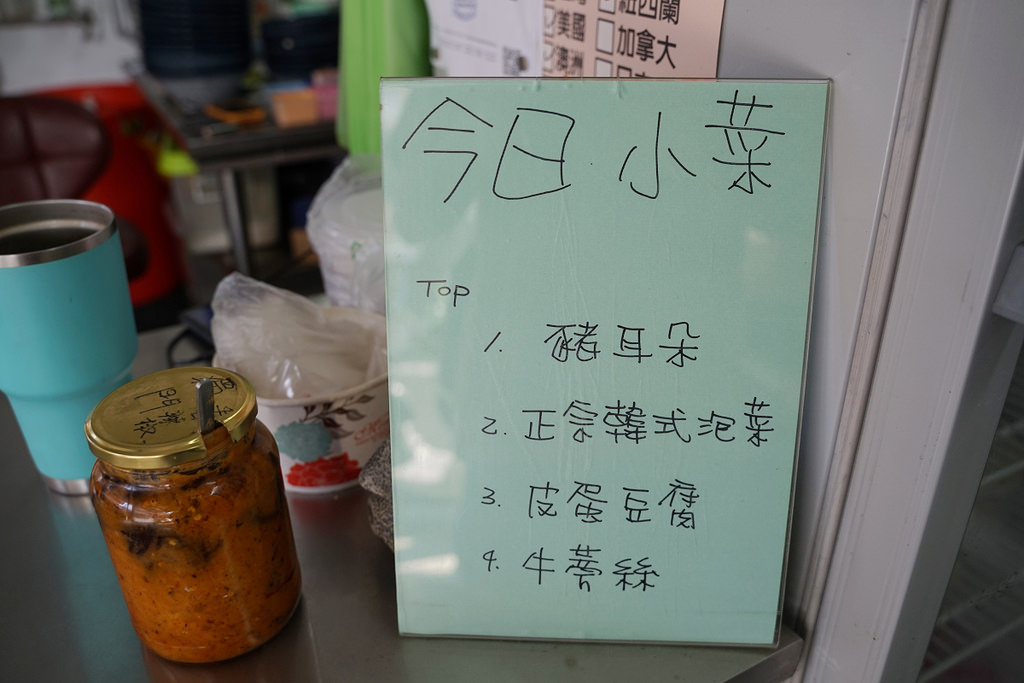 紐西蘭
美國
加拿大
澳洲
今日小菜
Top
1. 豬耳朵
2. 正宗韓式泡菜
3. 皮蛋豆腐
4. 牛蒡絲